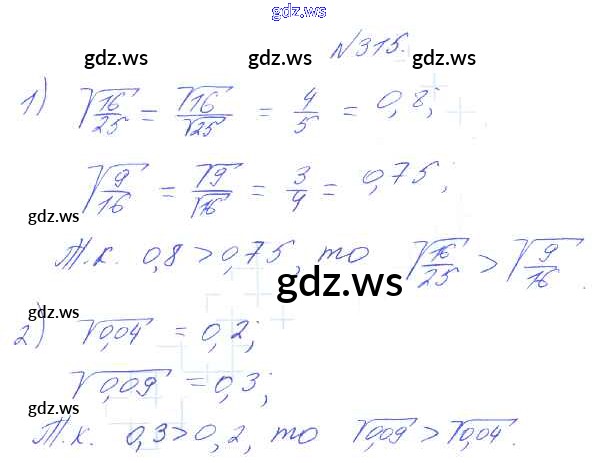 gdz.ws
№315.
gdz.ws gdz.ws
1) √16/25 = √16/√25 = 4/5 = 0,8;
√9/16 = √9/√16 = 3/4 = 0,75;
gdz.ws
Т.к. 0,8 > 0,75, то √16/25 > √9/16.
gdz.ws
2) √0,04 = 0,2;
√0,09 = 0,3;
gdz.ws gdz.ws
Т.к. 0,3 > 0,2, то √0,09 > √0,04.